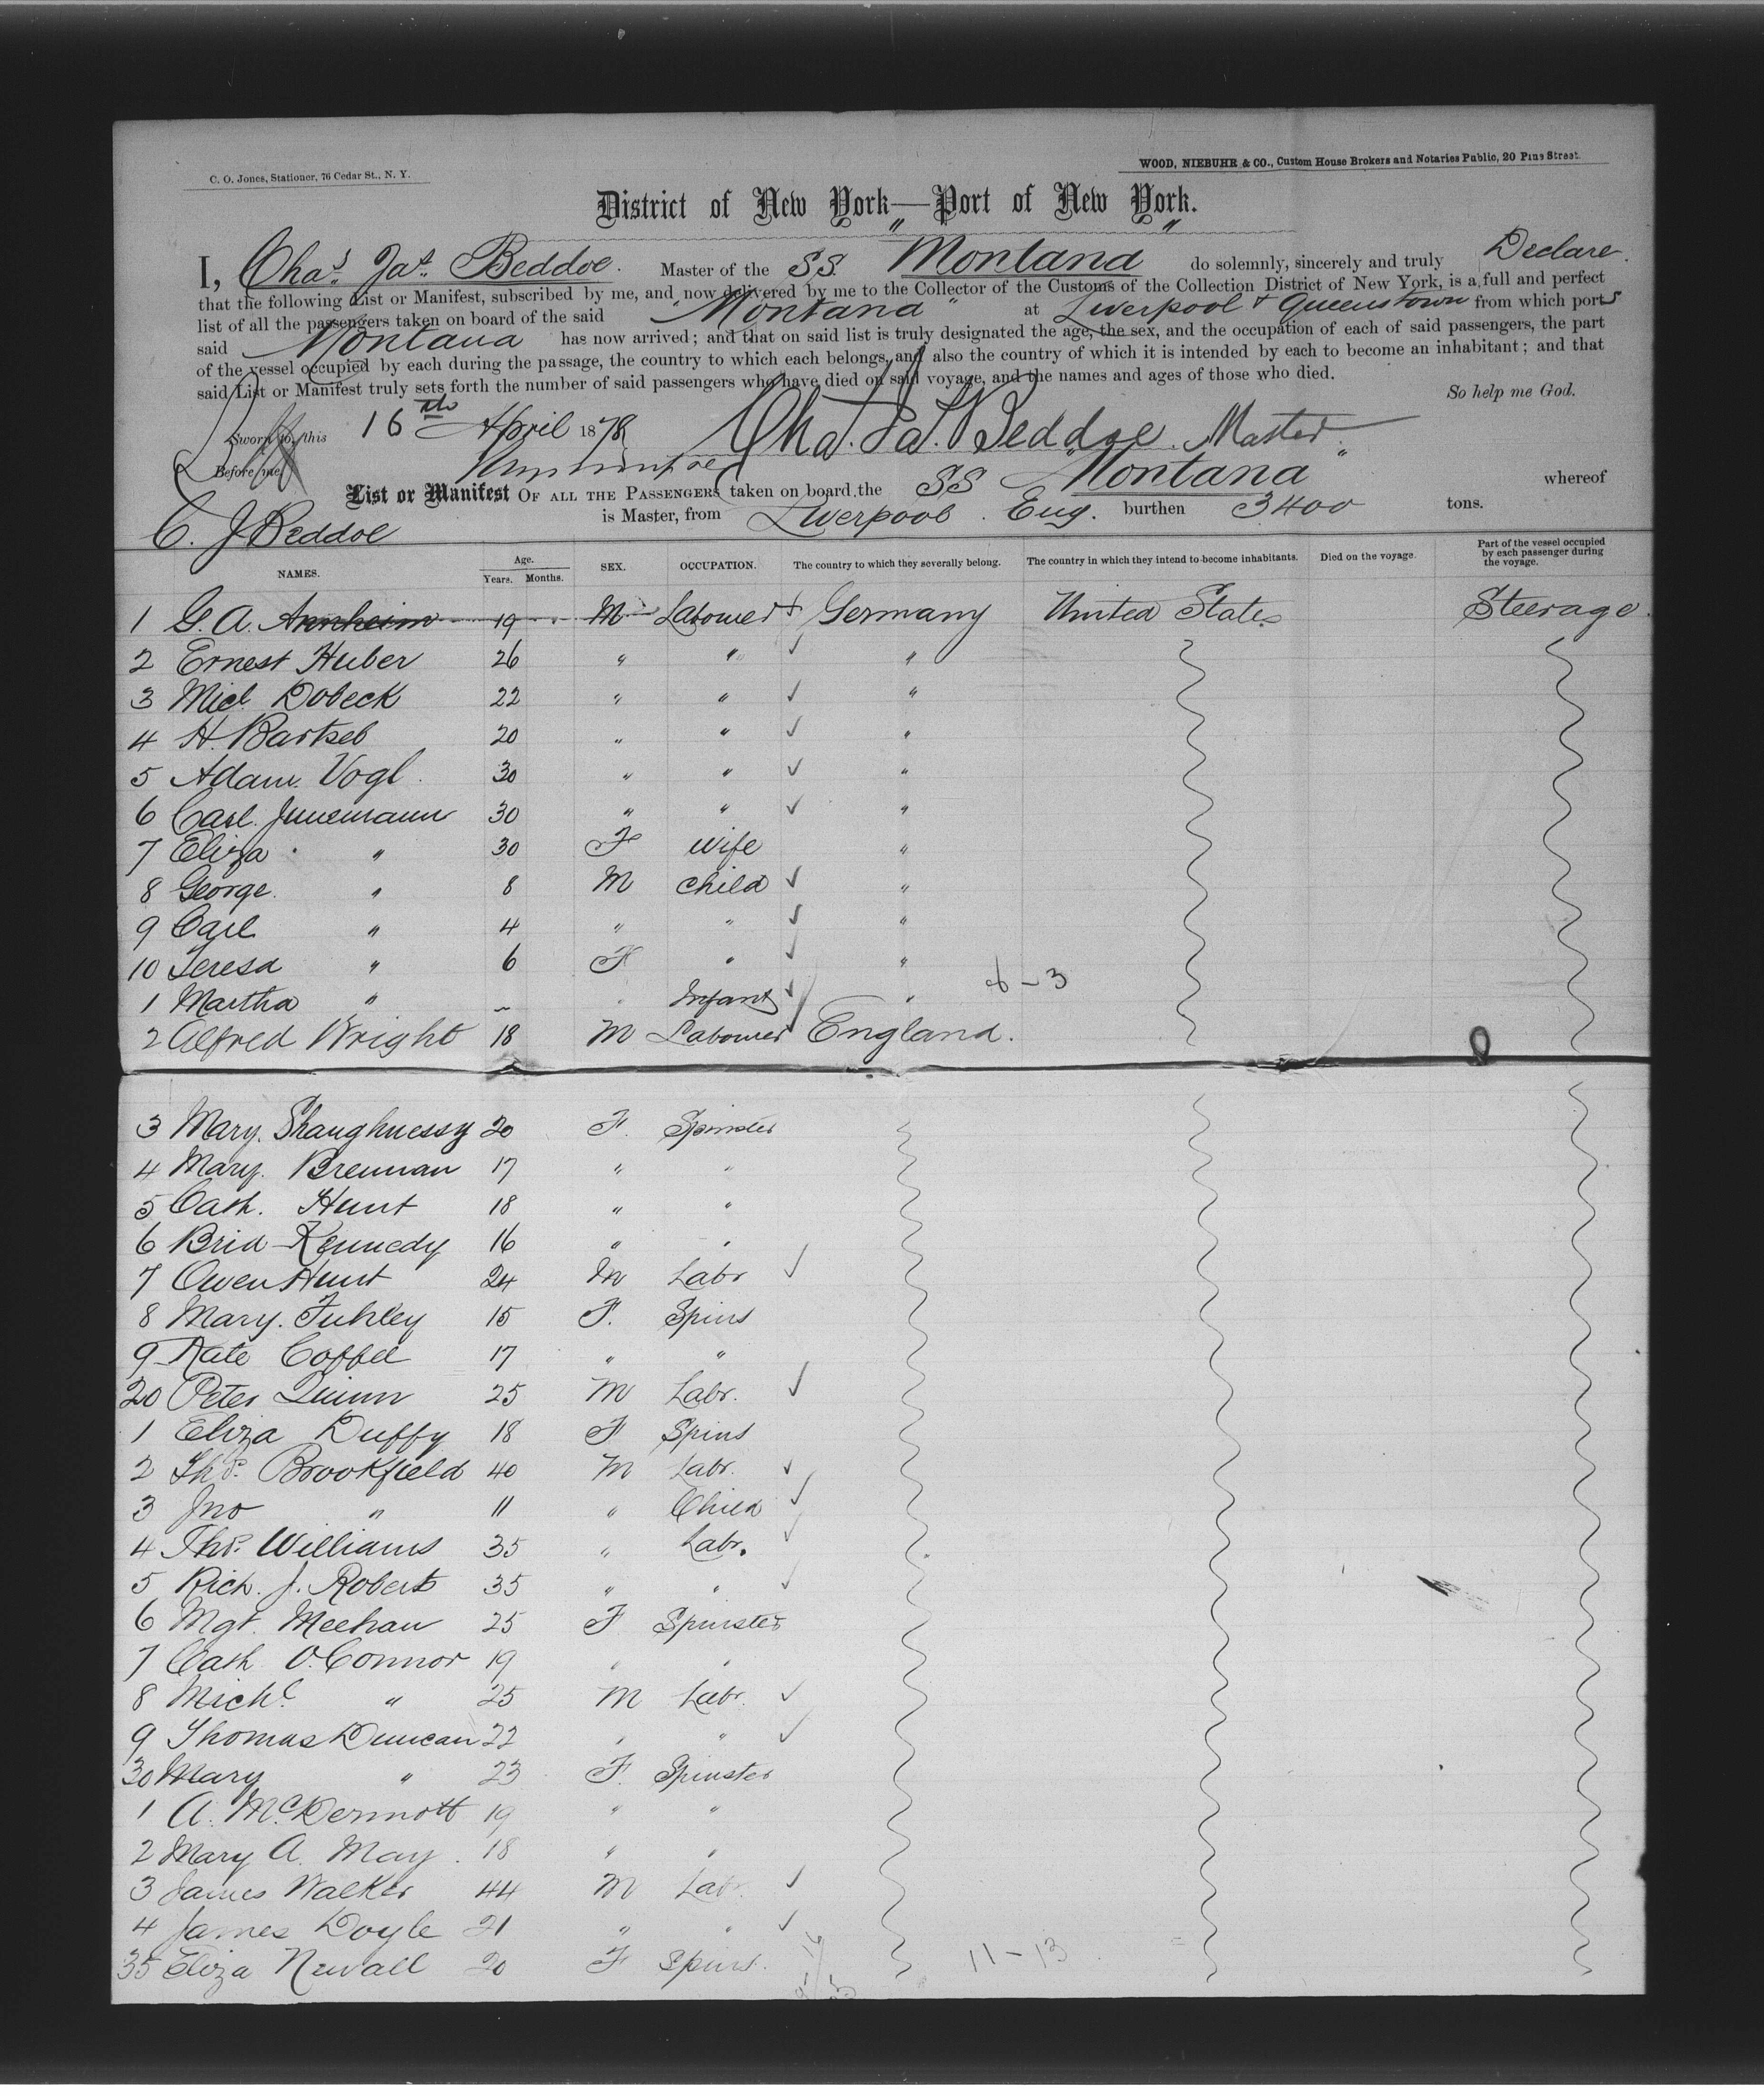 C. O. Jones, Stationer, 76 Cedar St., N. Y.
WOOD, NIEBUHR & CO., Custom House Brokers and Notaries Public, 20 Pine Street.
District of New York—Port of New York.
I, Chas. Jas. Beddoe. Master of the SS. "Montana" do solemnly, sincerely and truly Declare.
that the following List or Manifest, subscribed by me, and now delivered by me to the Collector of the Customs of the Collection District of New York, is a full and perfect
list of all the passengers taken on board of the said "Montana" at Liverpool & Queenstown from which ports
said Montana has now arrived; and that on said list is truly designated the age, the sex, and the occupation of each of said passengers, the part
of the vessel occupied by each during the passage, the country to which each belongs, and also the country of which it is intended by each to become an inhabitant; and that
said List or Manifest truly sets forth the number of said passengers who have died on said voyage, and the names and ages of those who died.
So help me God.
Sworn to, this 16th April 1878 Chas. Jas. Beddoe. Master.
Before me
List or Manifest OF ALL THE PASSENGERS taken on board the SS "Montana" whereof
C. J Beddoe is Master, from Liverpool. Eng. burthen 3400 tons.
NAMES. Age. Years. Months. SEX. OCCUPATION. The country to which they severally belong. The country in which they intend to become inhabitants. Died on the voyage. Part of the vessel occupied by each passenger during the voyage.
1 G. A. Annheim 19 M Labourer Germany United States Steerage.
2 Ernest Huber 26 " " "
3 Micl. Dobeck 22 " " "
4 H. Bartseb 20 " " "
5 Adam. Vogl. 30 " " "
6 Carl. Junemann 30 " " "
7 Eliza " 30 F Wife "
8 George. " 8 M Child "
9 Carl " 4 " " "
10 Teresa " 6 F " "
1 Martha " Infant "
2 Alfred Wright 18 M Labourer England.
3 Mary. Shaughnessy 20 F. Spinster
4 Mary. Brennan 17 " "
5 Cath. Hunt 18 " "
6 Brid Kennedy 16 " "
7 Owen Hunt 24 M Labr
8 Mary. Fuhley 15 F. Spins
9 Kate Coffee 17 " "
20 Peter Quinn 25 M Labr.
1 Eliza Duffy 18 F Spins
2 Thos. Brookfield 40 M Labr.
3 Jno " 11 " Child
4 Thos. Williams 35 " Labr.
5 Rich. J. Roberts 35 " "
6 Mgt. Meehan 25 F Spinster
7 Cath O'Connor 19 " "
8 Michl. " 25 M Labr.
9 Thomas Duncan 22 " "
30 Mary " 23 F. Spinster
1 A. McDermott 19 " "
2 Mary A. May. 18 " "
3 James Walker 44 M Labr
4 James Doyle 21 " "
35 Eliza Newall 20 F Spins. 11-13